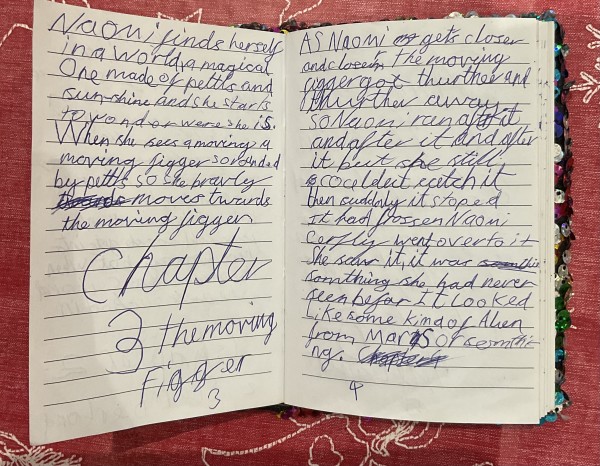 Naomi finds herself
in a world, a magical
One made of petths and
sunshine and she starts
to yonder were she is.
When she sees a moving a
moving figger sorounded
by petths so she bravly
moves twards
the moving figger
Chapter
3 the moving
Figger
3
AS Naomi gets closer
and closer, The moving
figger got thurther and
thurther away
so Naomi ran after it
and after it and after
it but she still
cooceldent catch it
then suddnly it stoped
it had frossen Naomi
cerflly went over to it
She saw it, it was
somthing she had never
seen befor It looked
like some kind of Alien
from Mars or somthi
ng.
4